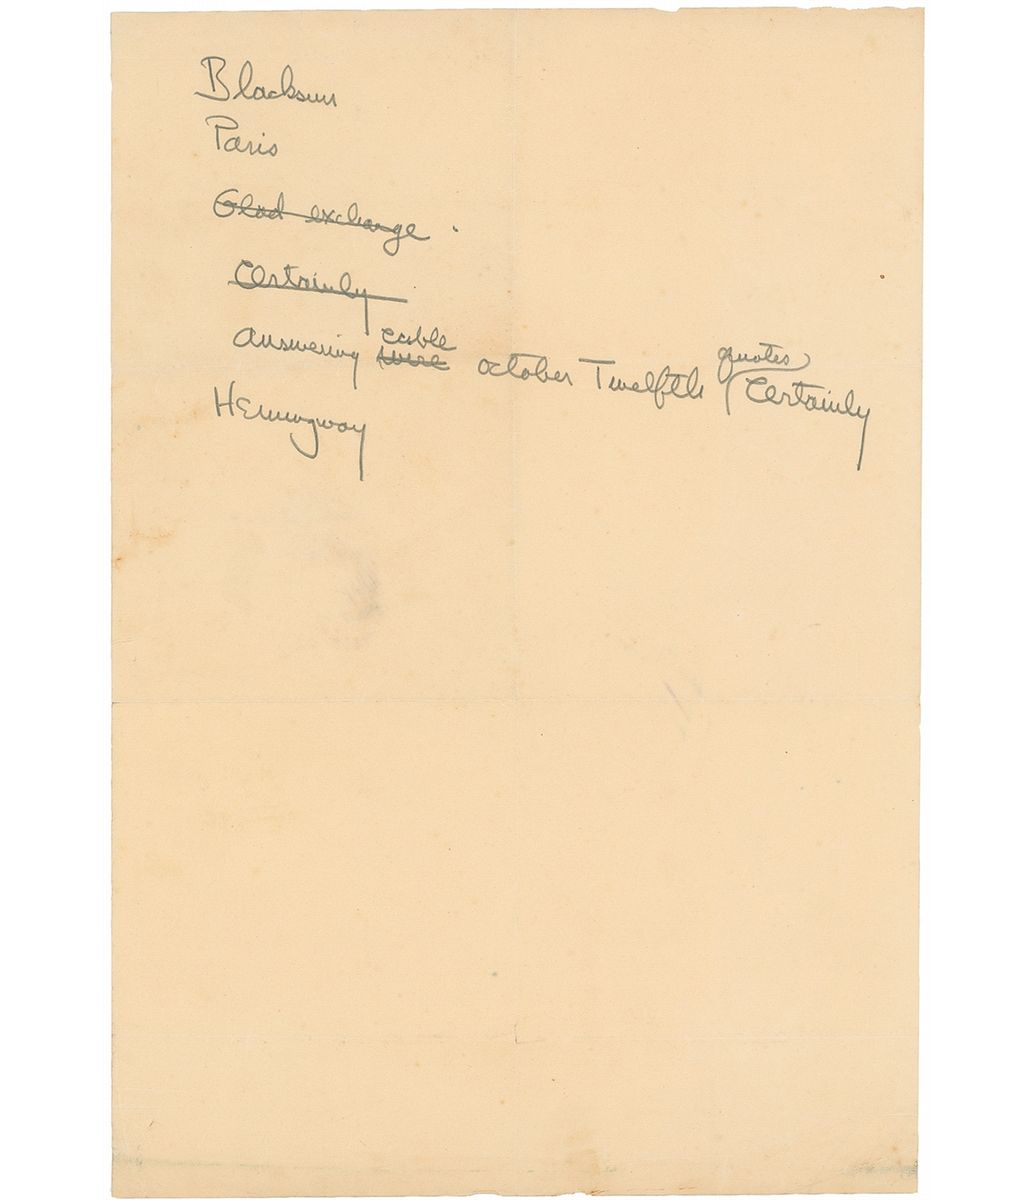 Blacksun
Paris
Glad exchange .
Certainly
answering wire cable october Twelfth quotes Certainly
Hemingway